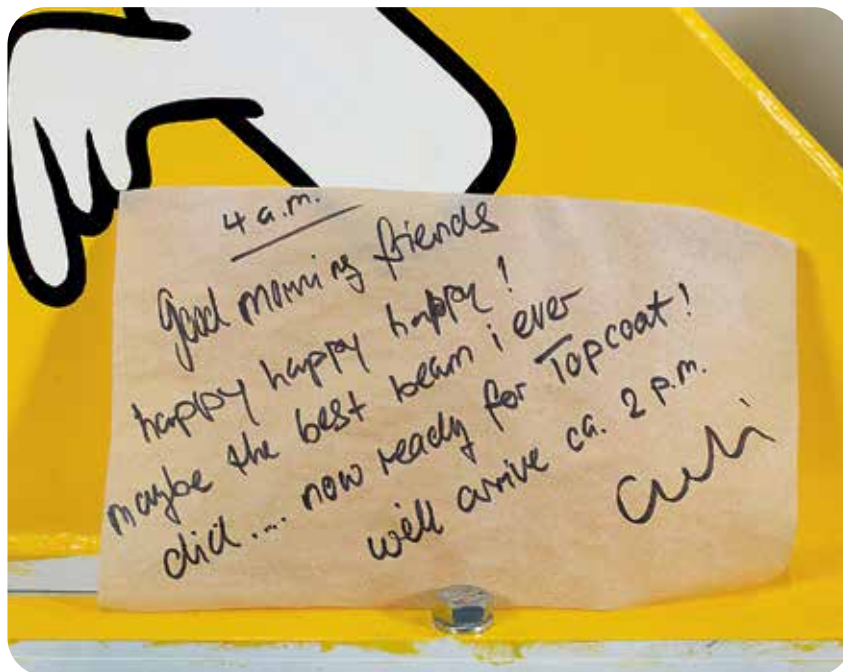 4 a.m.
good morning friends
happy happy happy!
maybe the best beam i ever
did.... now ready for Topcoat!
will arrive ca. 2 p.m.